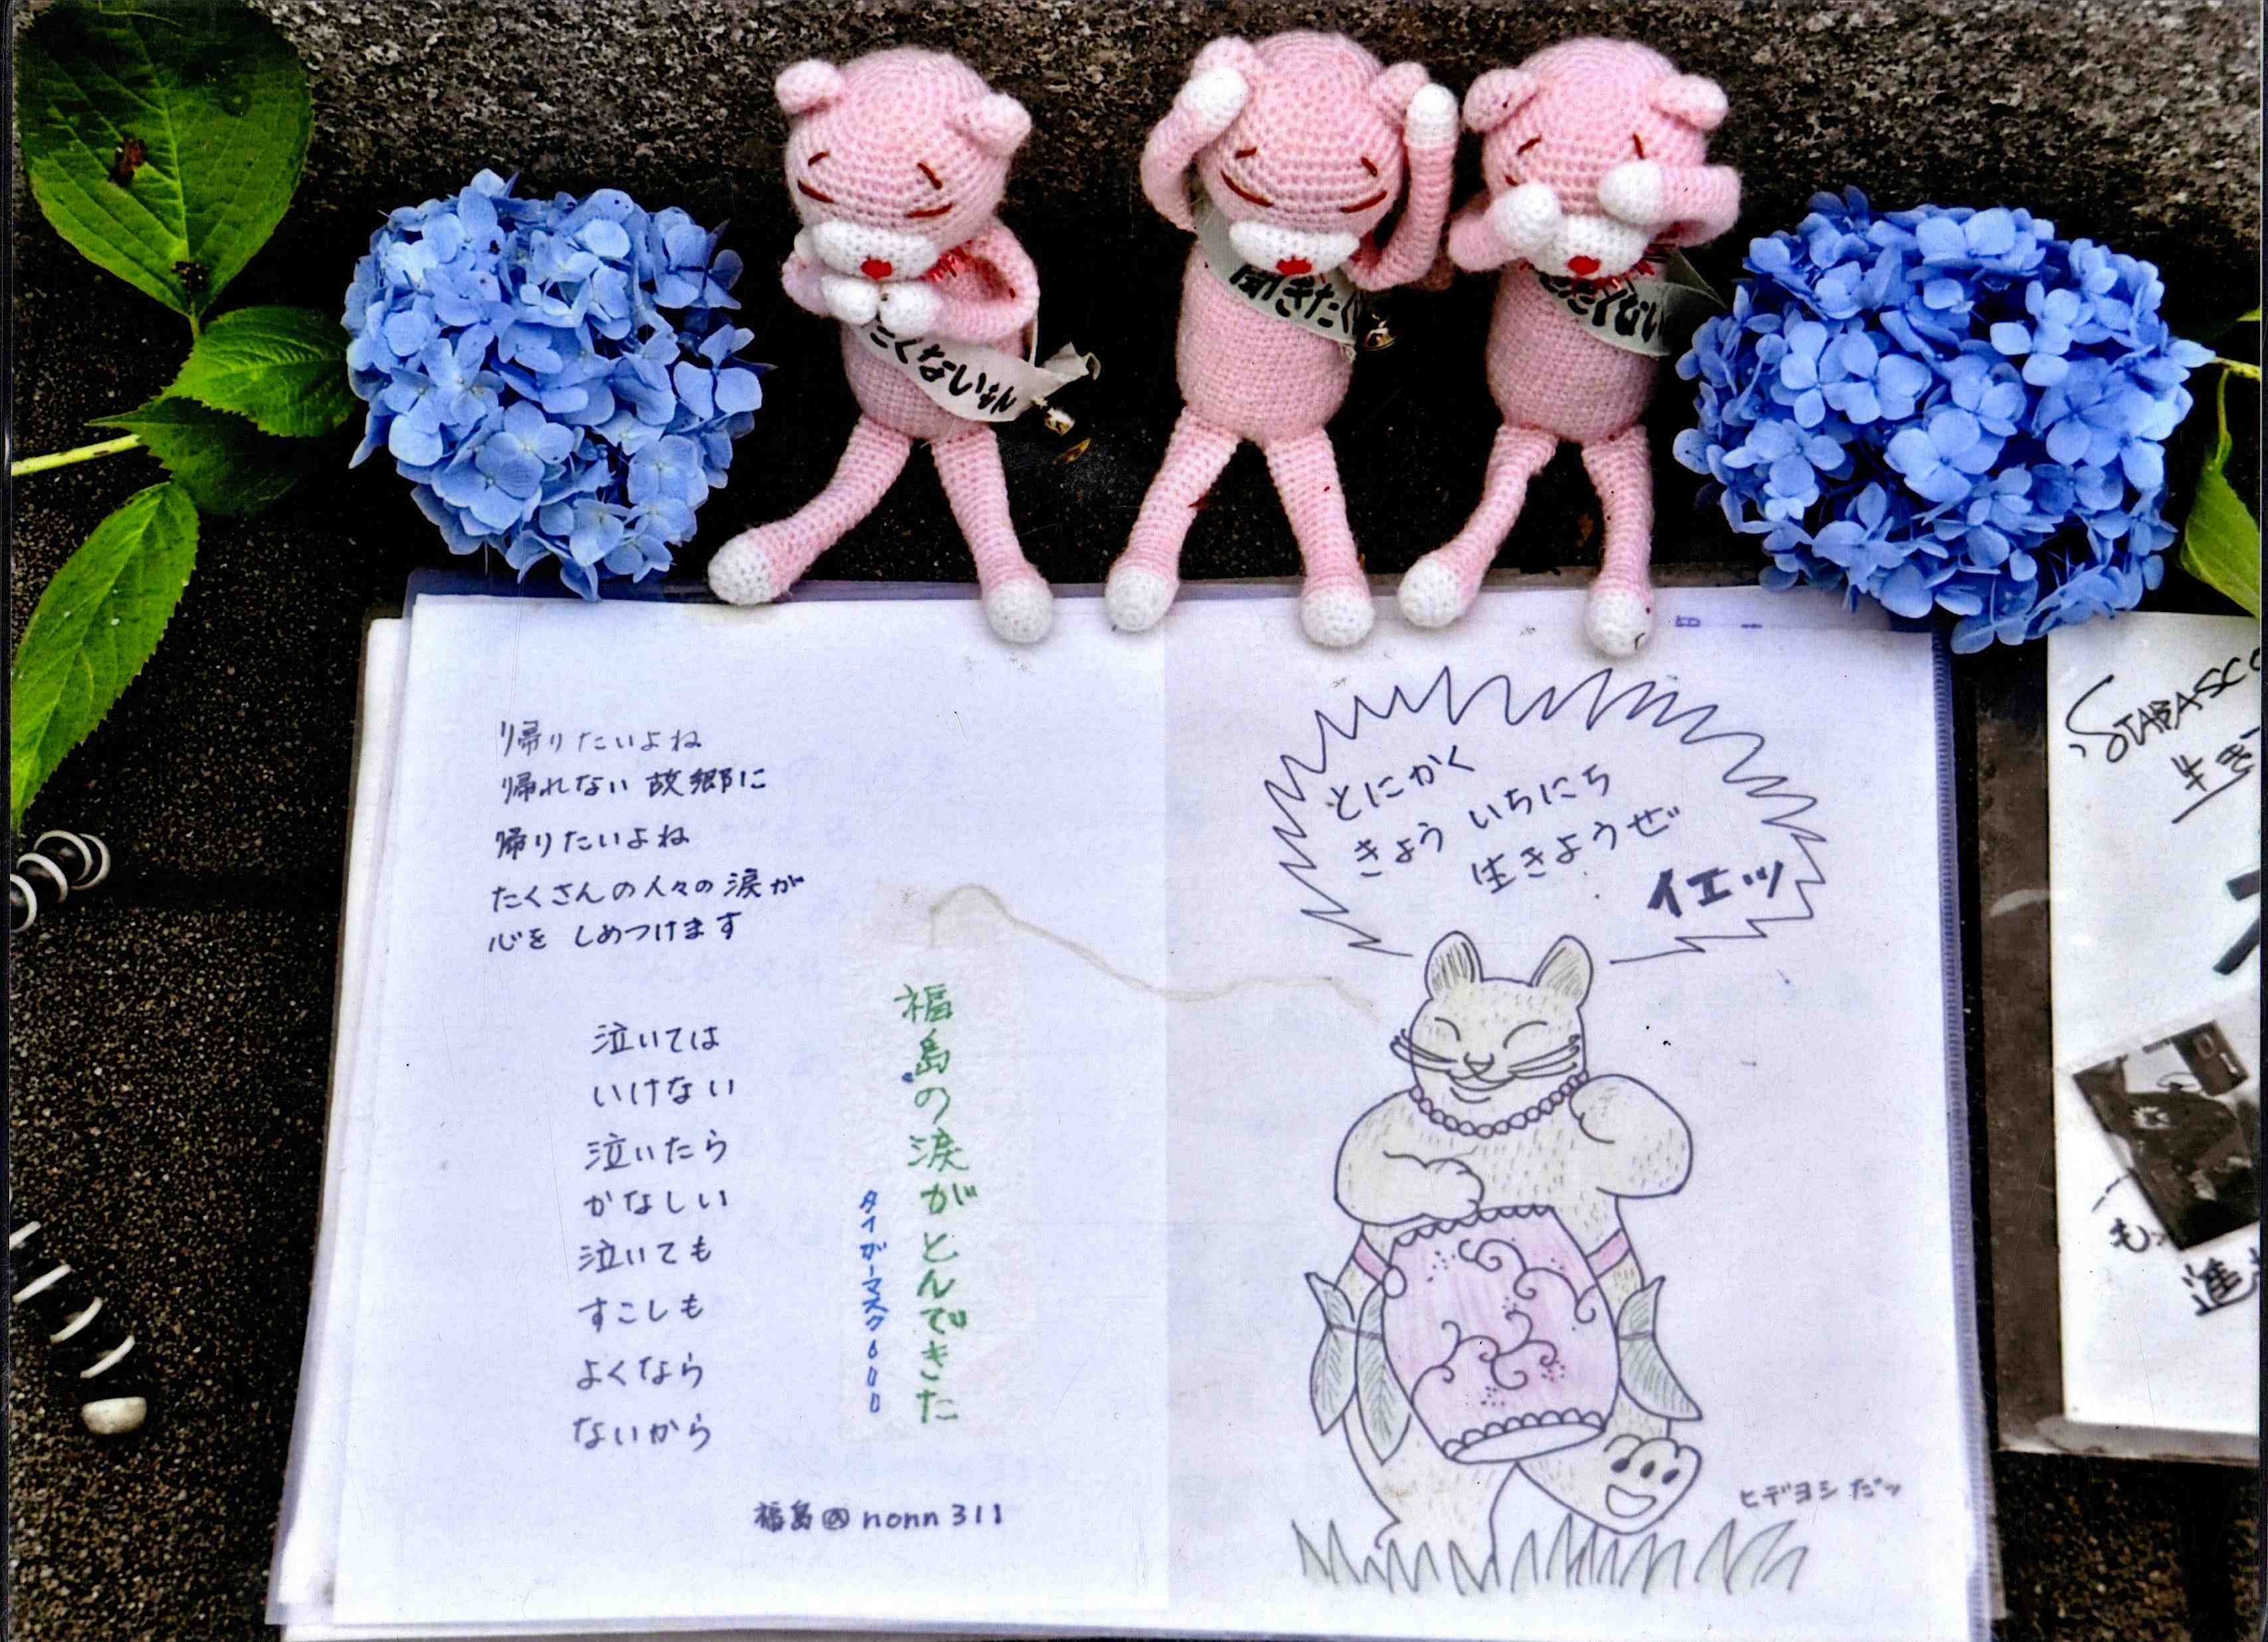 くない
聞きたく
ない
帰りたいよね
帰れない故郷に
帰りたいよね
たくさんの人々の涙が
心を しめつけます
泣いては
いけない
泣いたら
かなしい
泣いても
すこしも
よくなら
ないから
福島の涙がとんできた
タイガーマスク
福島@nonn311
とにかく
きょう いちにち
生きようぜ
イェッ
ヒデヨシだッ
STABASCO
生き
も
進